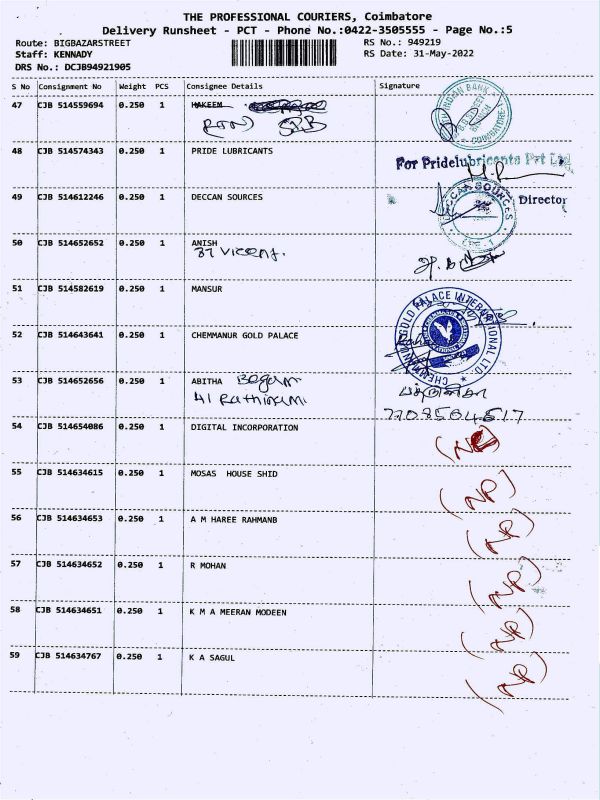 THE PROFESSIONAL COURIERS, Coimbatore
Delivery Runsheet - PCT - Phone No.:0422-3505555 - Page No.:5
Route: BIGBAZARSTREET RS No.: 949219
Staff: KENNADY RS Date: 31-May-2022
DRS No.: DCJB94921905
S No Consignment No Weight PCS Consignee Details Signature
47 CJB 514559694 0.250 1 HAKEEM
INDIAN BANK
COIMBATORE
48 CJB 514574343 0.250 1 PRIDE LUBRICANTS
For Pridelubricants Pvt Ltd
49 CJB 514612246 0.250 1 DECCAN SOURCES
DECCAN SOURCES
Director
50 CJB 514652652 0.250 1 ANISH
37 Vicent.
51 CJB 514582619 0.250 1 MANSUR
52 CJB 514643641 0.250 1 CHEMMANUR GOLD PALACE
CHEMMANUR GOLD PALACE INTERNATIONAL LTD
53 CJB 514652656 0.250 1 ABITHA Begam
41 Rathinam
7708504517
54 CJB 514654086 0.250 1 DIGITAL INCORPORATION
55 CJB 514634615 0.250 1 MOSAS HOUSE SHID (NP)
56 CJB 514634653 0.250 1 A M HAREE RAHMANB (NP)
57 CJB 514634652 0.250 1 R MOHAN (NP)
58 CJB 514634651 0.250 1 K M A MEERAN MODEEN (NP)
59 CJB 514634767 0.250 1 K A SAGUL (NP)